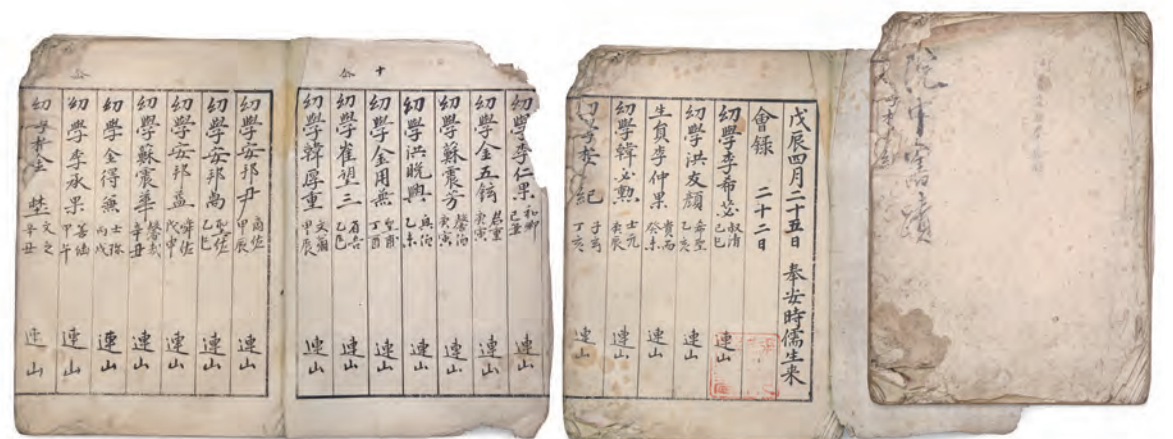 院中蹟
戊辰四月二十五日 奉安時儒生來
會錄 二十二日
幼學李希苾 叔清 己巳 連山
幼學洪友顔 希聖 乙亥 連山
生員李仲果 癸未 連山
幼學韓必勳 士元 庚辰 連山
紀 丁亥 連山
幼學李仁果 和卿 連山
幼學金五 庚寅 連山
幼學蘇震芳 馨伯 庚寅 連山
幼學洪晚興 乙未 連山
幼學金用兼 丁酉 連山
幼學崔望三 乙巳 連山
幼學韓厚重 文爾 甲辰 連山
幼學安邦尹 甲辰 連山
幼學安邦卨 聖佐 乙巳 連山
幼學安邦益 舜佐 戊申 連山
幼學蘇震華 馨哉 辛丑 連山
幼學金得兼 士弥 丙戌 連山
幼學李承果 甲午 連山
幼學 文之 辛丑 連山